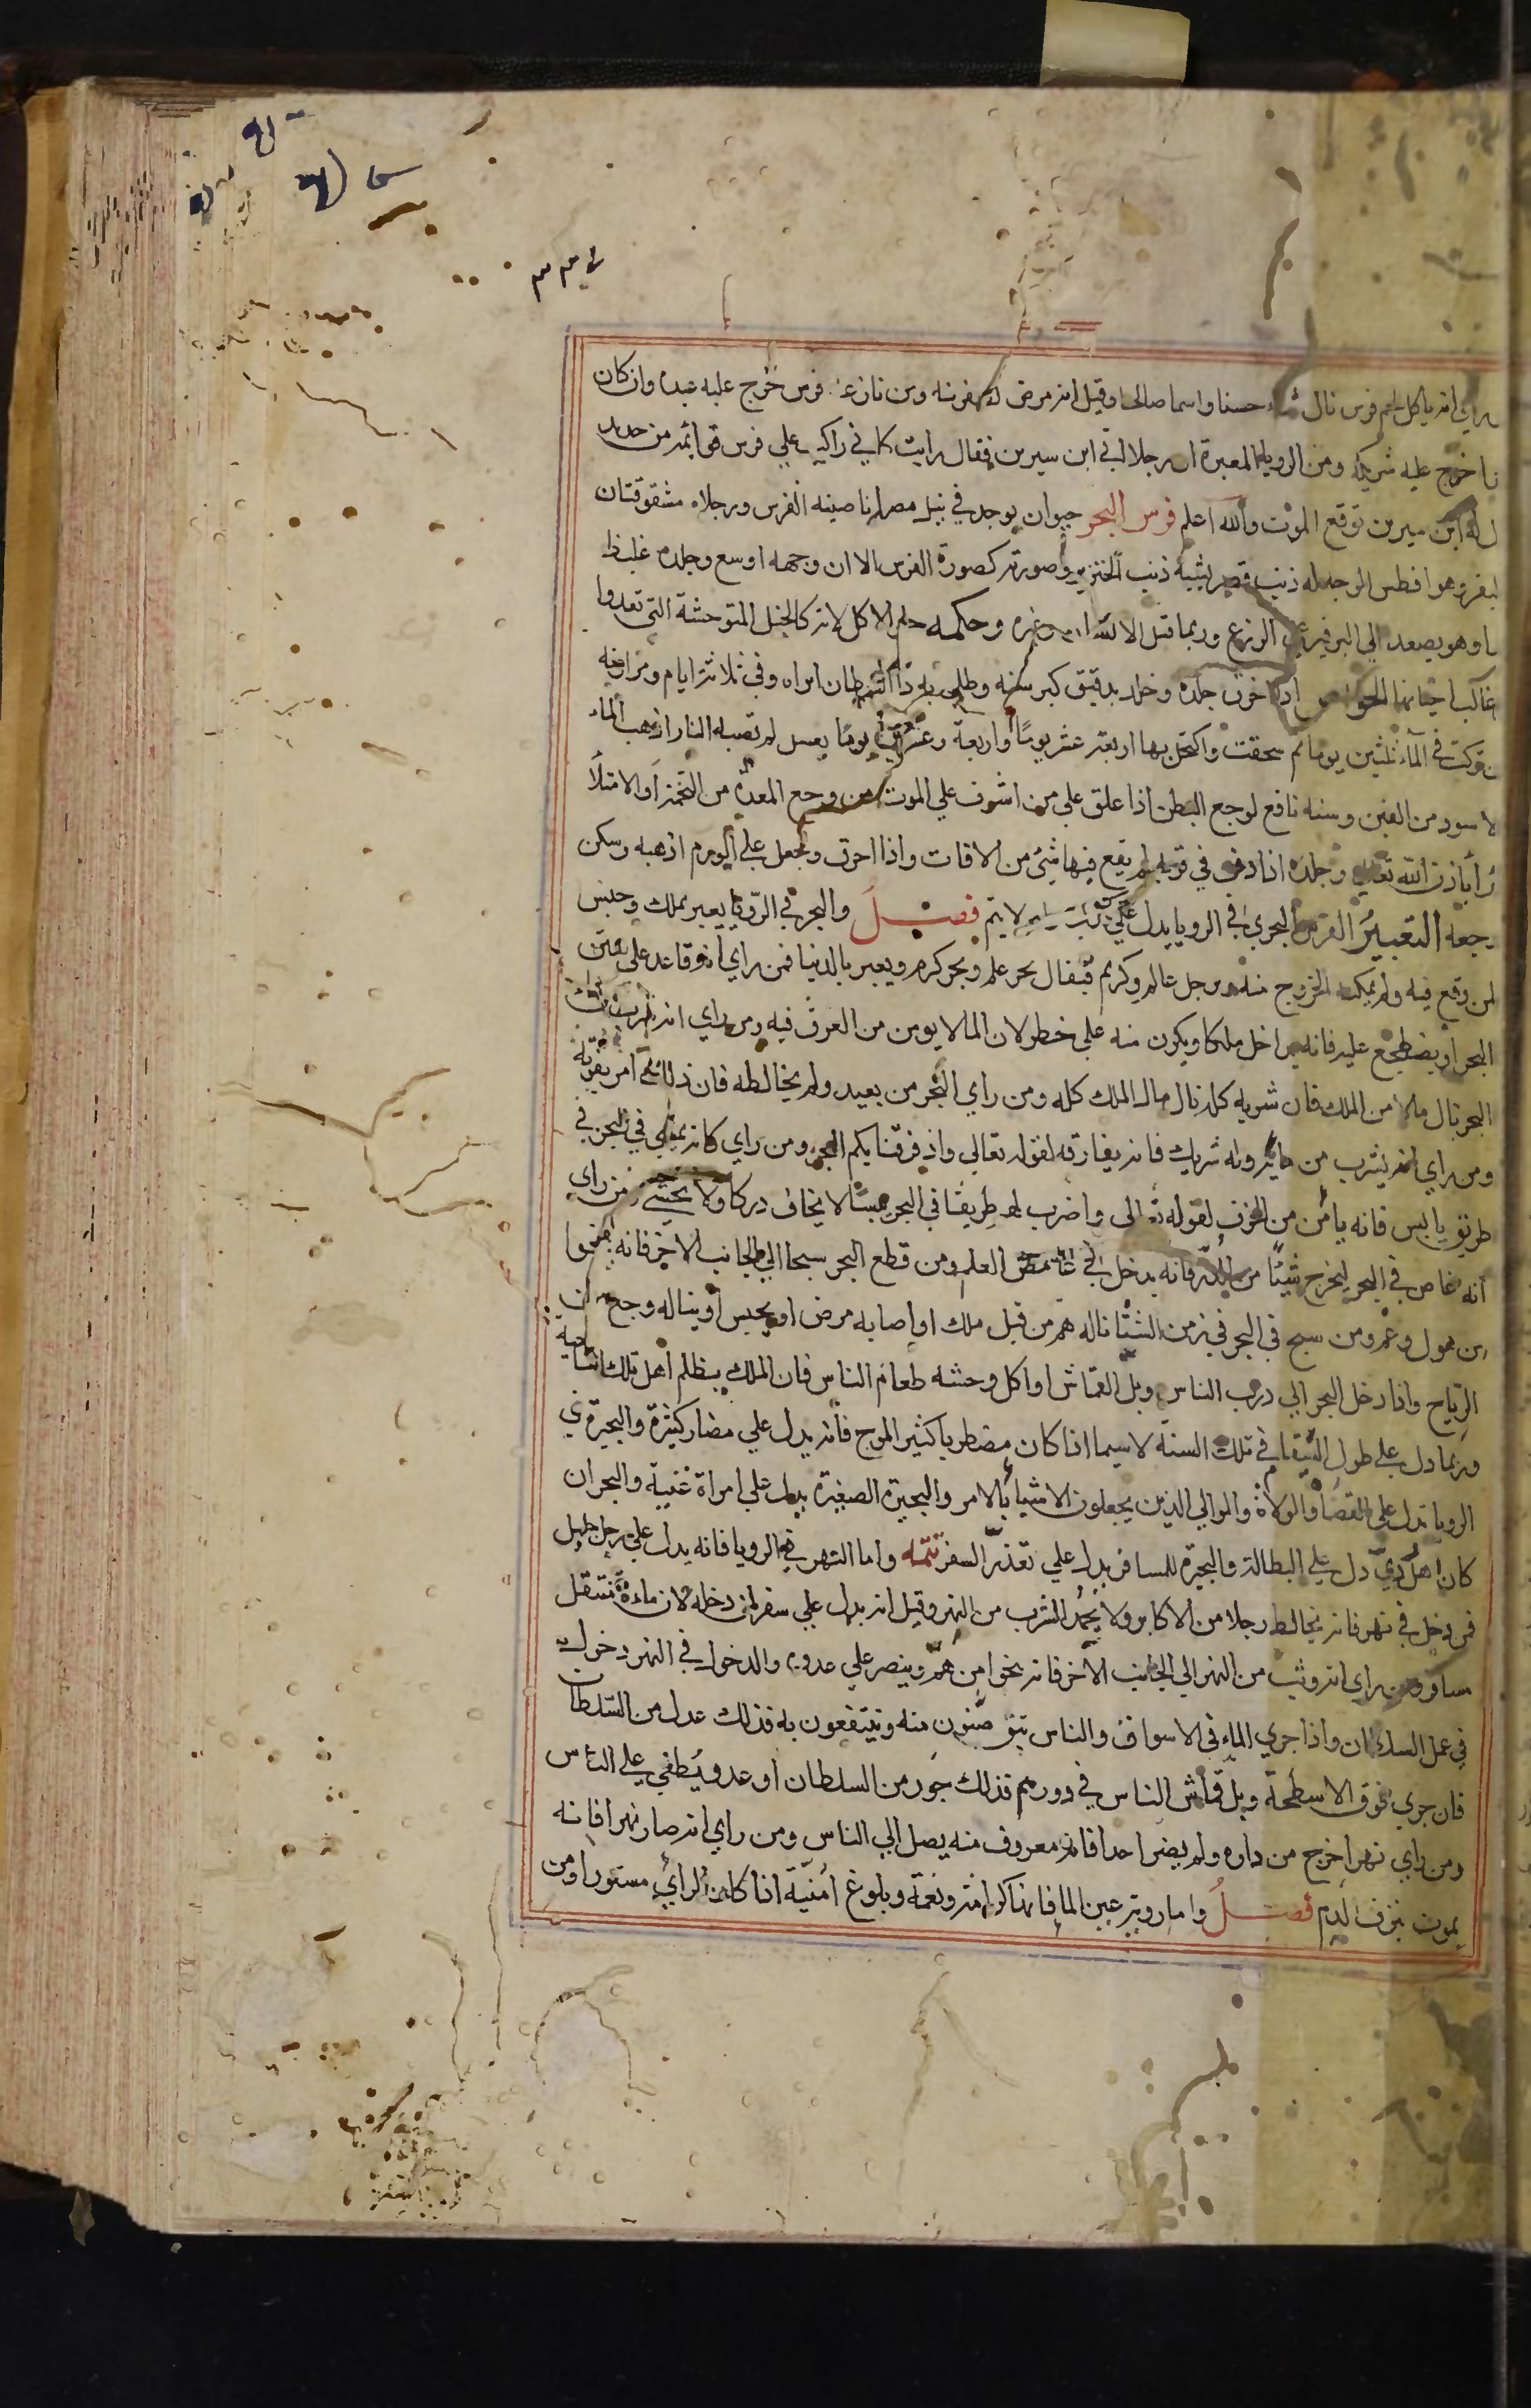 راي انه ياكل لحم فرس نال ثناء حسنا واسما صالحا وقيل انه مرض لصفرته ومن نازعه فرس خرج عليه عبده وان كان
خرج عليه شريكه ومن الرويا المعبرة ان رجلا اتى ابن سيرين فقال رايت كاني راكب علي فرس قوائمه من حديد
له ابن سيرين توقع الموت والله اعلم فرس البحر حيوان يوجد في نيل مصر له ناصية الفرس ورجلاه مشقوقتان
البقر وهو افطس الوجه له ذنب قصير يشبه ذنب الخنزير وصورته كصورة الفرس الا ان وجهه اوسع وجلده غليظ
وهو يصعد الي البر فيرعي الزرع وربما قتل الانسان وغيره وحكمه حل الاكل لانه كالخيل المتوحشة التي تعدوا
غالب احيانها الخواص اذا حرق جلده وخلط بدقيق كبرسنه وطلي به ذا السرطان ابراه وفي ثلاثة ايام ومرارته
تركت في الماء ثلثين يوما ثم سحقت واكتحل بها اربعة عشر يوما او اربعة وعشرين يوما بعسل لم تصبه النار اذهب الماء
الاسود من العين وسنه نافع لوجع البطن اذا علق علي من اشرف علي الموت من وجع المعدة من التخمة او الامتلا
برأ باذن الله تعالي وجلده اذا دفن في قرية لم يقع فيها شئ من الافات واذا احرق وجعل علي الورم اذهبه وسكن
وجعه التعبير الفرس البحري في الرويا يدل علي كذب لا يتم فصل والبحر في الرويا يعبر بملك وحبس
لمن وقع فيه ولم يمكنه الخروج منه ورجل عالم وكريم فيقال بحر علم وبحر كرم ويعبر بالدنيا فمن راي انه قاعد علي متن
البحر او يضطجع عليه فانه يداخل ملكا ويكون منه علي خطر لان الما لا يومن من الغرق فيه ومن راي انه شرب ماء
البحر نال مالا من الملك فان شربه كله نال مال الملك كله ومن راي البحر من بعيد ولم يخالطه فان ذلك امر يفوته
ومن راي انه يشرب من مائه وله شريك فانه يفارقه لقوله تعالي واذ فرقنا بكم البحر ومن راي كانه يمشي في البحر في
طريق يابس فانه يأمن من الخوف لقوله تعالى واضرب لهم طريقا في البحر يبسا لا يخاف دركا ولا يخشى ومن راي
انه غاص في البحر ليخرج شيئا من اللؤلؤ فانه يدخل في غامض العلم ومن قطع البحر سبحا الي الجانب الاخر فانه ينجوا
من هول وغم ومن سبح في البحر في زمن الشتا ناله هم من قبل ملك او اصابه مرض او يحبس او يناله وجع من
الرياح واذا دخل البحر الي درب الناس وبل القماش او اكل وحشه طعام الناس فان الملك يظلم اهل تلك الناحية
وربما دل علي طول الشتا في تلك السنة لاسيما اذا كان مضطربا كثير الموج فانه يدل علي مضار كثيرة والبحيرة في
الرويا تدل علي القضاة والولاة والموالي الذين يجعلون الاشيا بالامر والبحيرة الصغيرة تدل علي امراة غنية والبحر ان
كان دل علي البطالة والبحيرة للمسافر يدل علي تعذر السفر تتمه واما النهر في الرويا فانه يدل علي رجل جليل
فمن دخل في نهر فانه يخالط رجلا من الاكابر ولا يحمد الشرب من النهر وقيل انه يدل علي سفر لمن دخله لان ماءه ينتقل
مسافر ومن راي انه وثب من النهر الي الجانب الاخر فانه ينجوا من هم وينصر علي عدوه والدخول في النهر دخول
في عمل السلطان واذا جري الماء في الاسواق والناس يتوضئون منه وينتفعون به فذلك عدل من السلطان
فان جري فوق الاسطحة وبل قماش الناس في دورهم فذلك جور من السلطان او عدو يطغي علي الناس
ومن راي نهرا خرج من داره ولم يضر احدا فانه معروف منه يصل الي الناس ومن راي انه صار نهرا فانه
يموت بنزف الدم فصل واما رويتة عين الما فانها كرامة ونعمة وبلوغ امنية اذا كان الرائي مستورا ومن